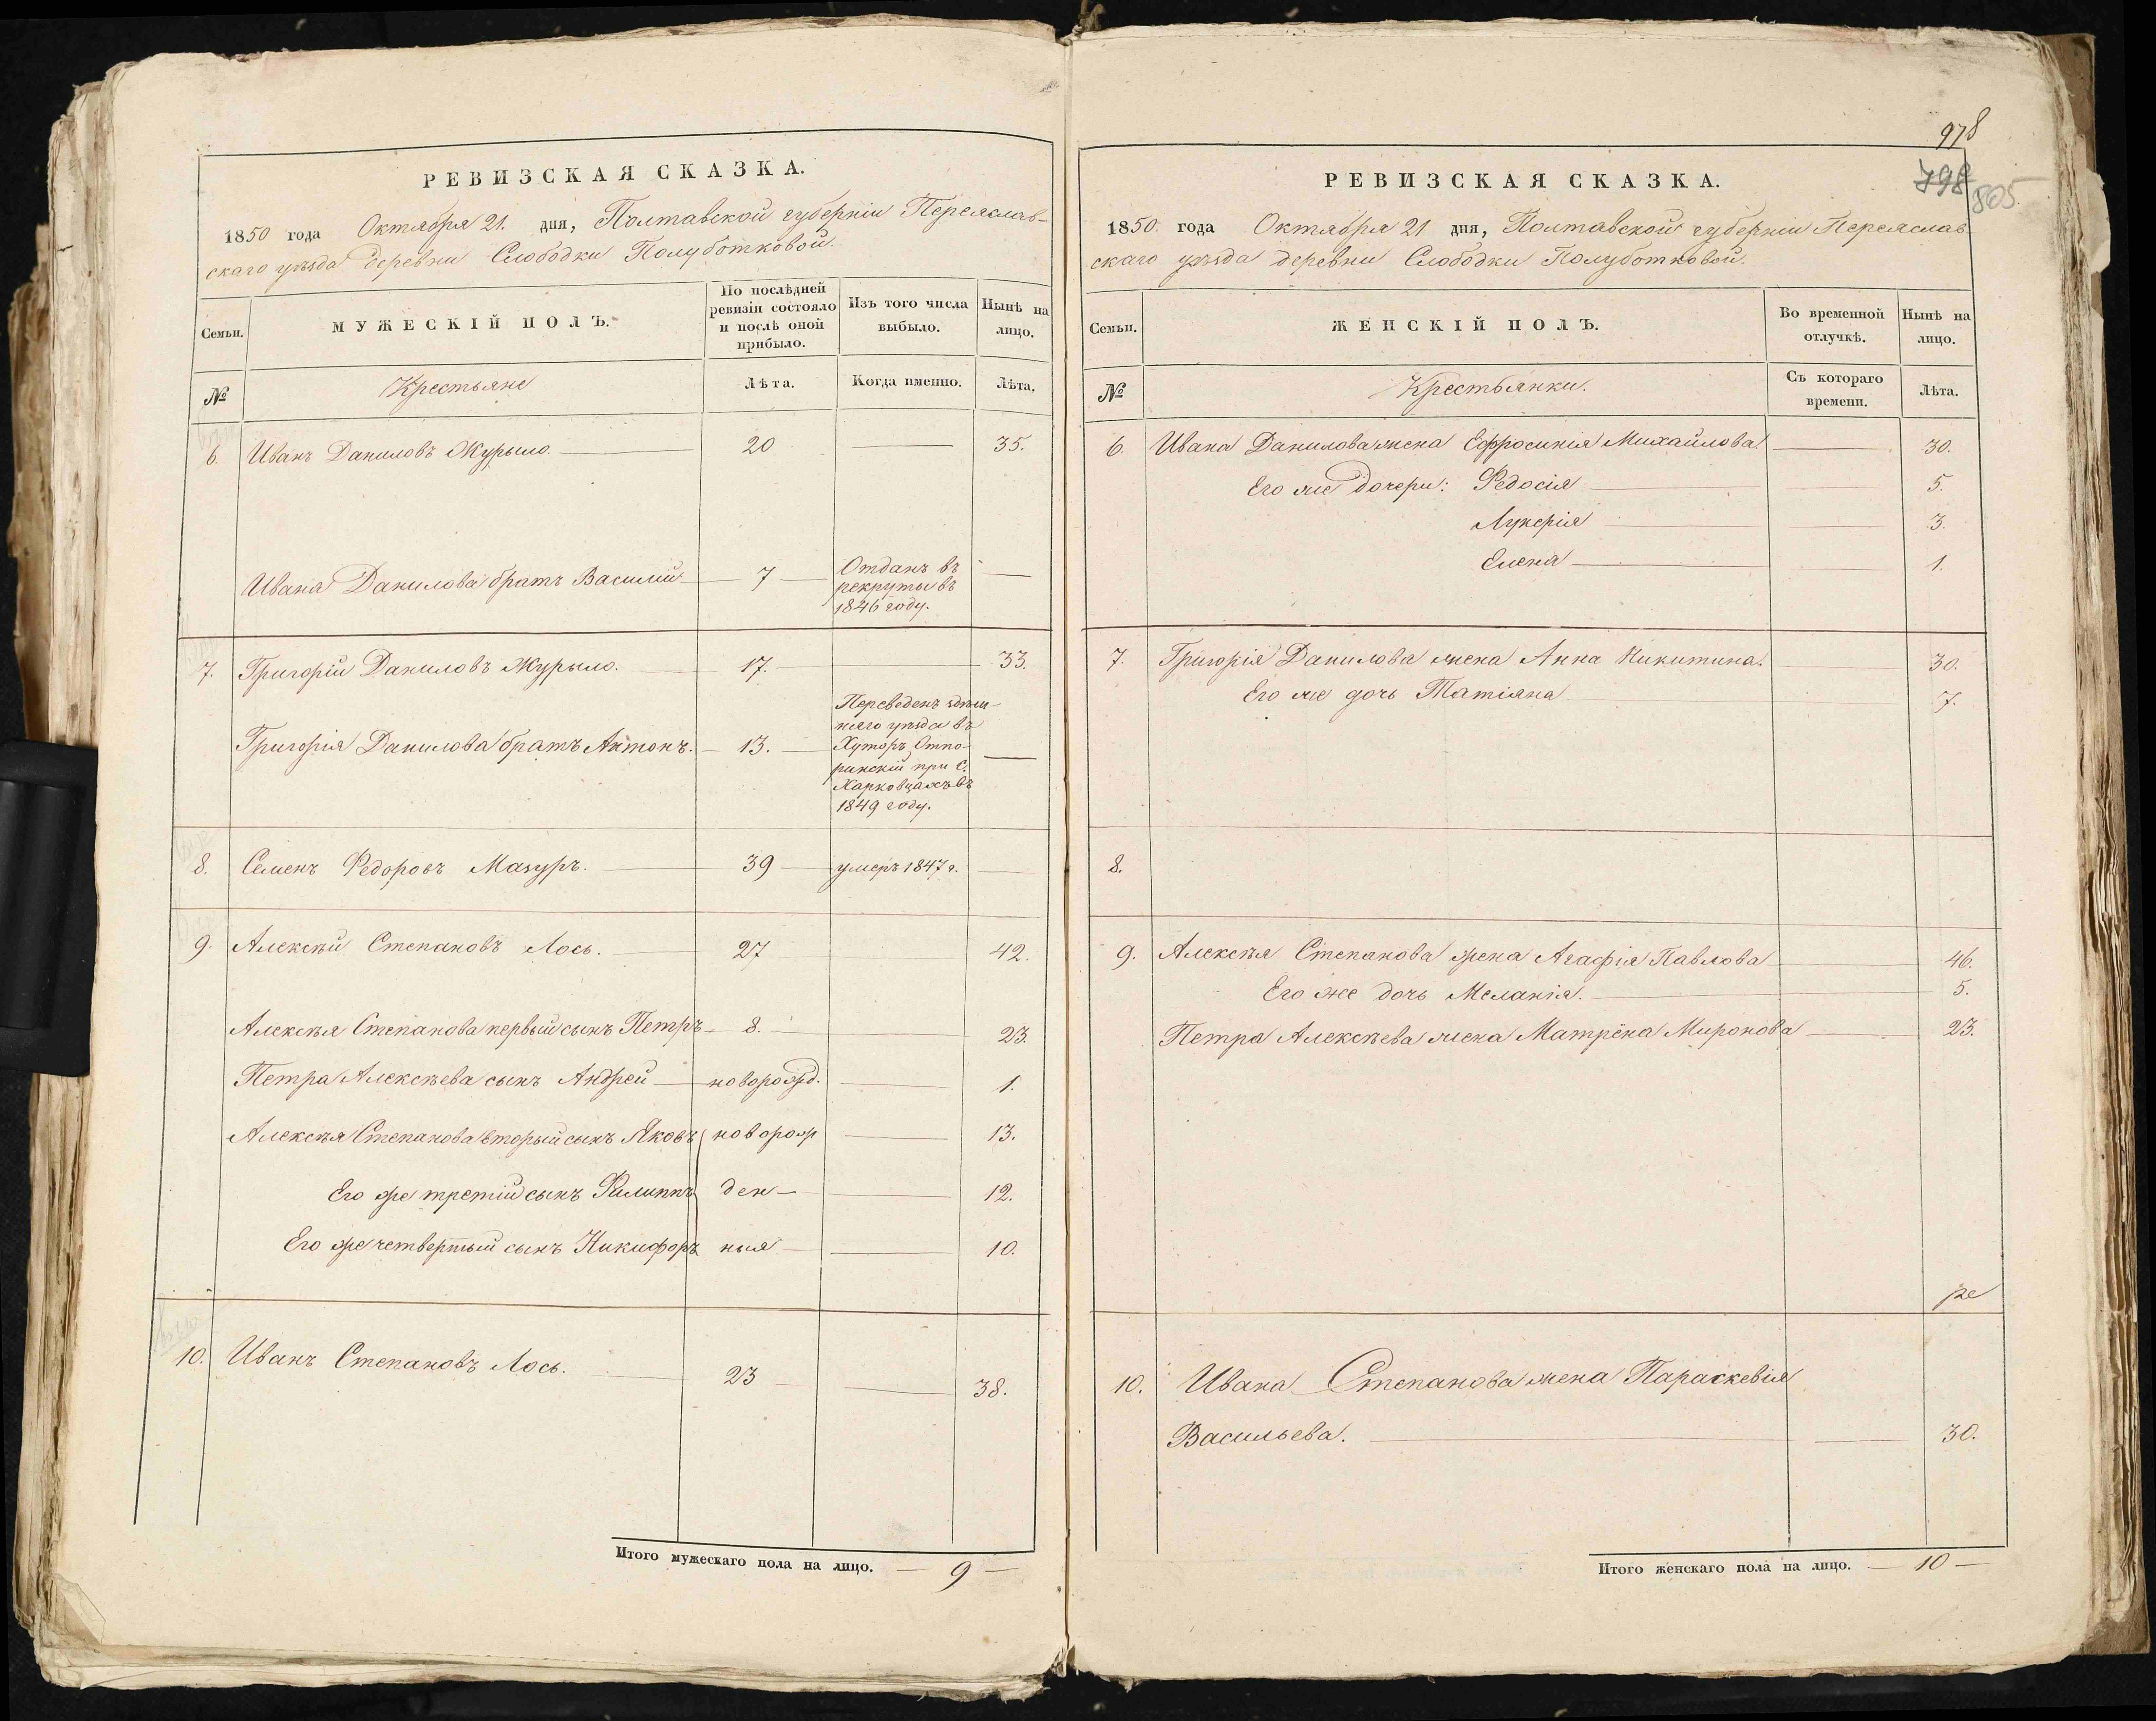 РЕВИЗСКАЯ СКАЗКА.
1850 года Октября 21. дня, Полтавской губерніи Переяслав-
скаго уѣзда деревни Слободки Полуботковой.
Семьи.
МУЖЕСКІЙ ПОЛЪ.
По послѣдней ревизіи состояло и послѣ оной прибыло.
Изъ того числа выбыло.
Нынѣ на лицо.
№
Крестьяне
Лѣта.
Когда именно.
Лѣта.
6. Иванъ Даниловъ Журыло 20 35.
Ивана Данилова братъ Василій 7 Отданъ въ
рекруты въ
1846 году.
7. Григорій Даниловъ Журыло. 17. 33.
Григорія Данилова братъ Антонъ. 13. Переведенъ здѣш-
няго уѣзда въ
Хуторъ
при С.
Харковцахъ въ
1849 году.
8. Семенъ Федоровъ Мазуръ. 39 умеръ 1847 г.
9. Алексѣй Степановъ Лось. 27 42.
Алексѣя Степанова первый сынъ Петръ 8. 23.
Петра Алексѣева сынъ Андрей новорожд. 1.
Алексѣя Степанова вторый сынъ Яковъ новорож 13.
Его же третій сынъ Филиппъ ден 12.
Его же четвертый сынъ Никифоръ ныя 10.
10. Иванъ Степановъ Лось. 23 38.
Итого мужескаго пола на лицо. — 9 —
978
798 805.
РЕВИЗСКАЯ СКАЗКА.
1850 года Октября 21 дня, Полтавской губерніи Переяслав
скаго уѣзда деревни Слободки Полуботковой.
Семьи.
ЖЕНСКІЙ ПОЛЪ.
Во временной отлучкѣ.
Нынѣ на лицо.
№
Крестьянки.
Съ котораго времени.
Лѣта.
6. Ивана Данилова жена Ефросинія Михайлова 30.
Его же дочери: Федосія 5.
Лукерія 3.
Елена 1.
7. Григорія Данилова жена Анна Никитина. 30.
Его же дочь Татіяна 7.
8.
9. Алексѣя Степанова жена Агафія Павлова 46.
Его же дочь Меланія. 5.
Петра Алексѣева жена Матрёна Миронова 23.
10. Ивана Степанова жена Параскевія
Васильева. 30.
Итого женскаго пола на лицо. — 10 —